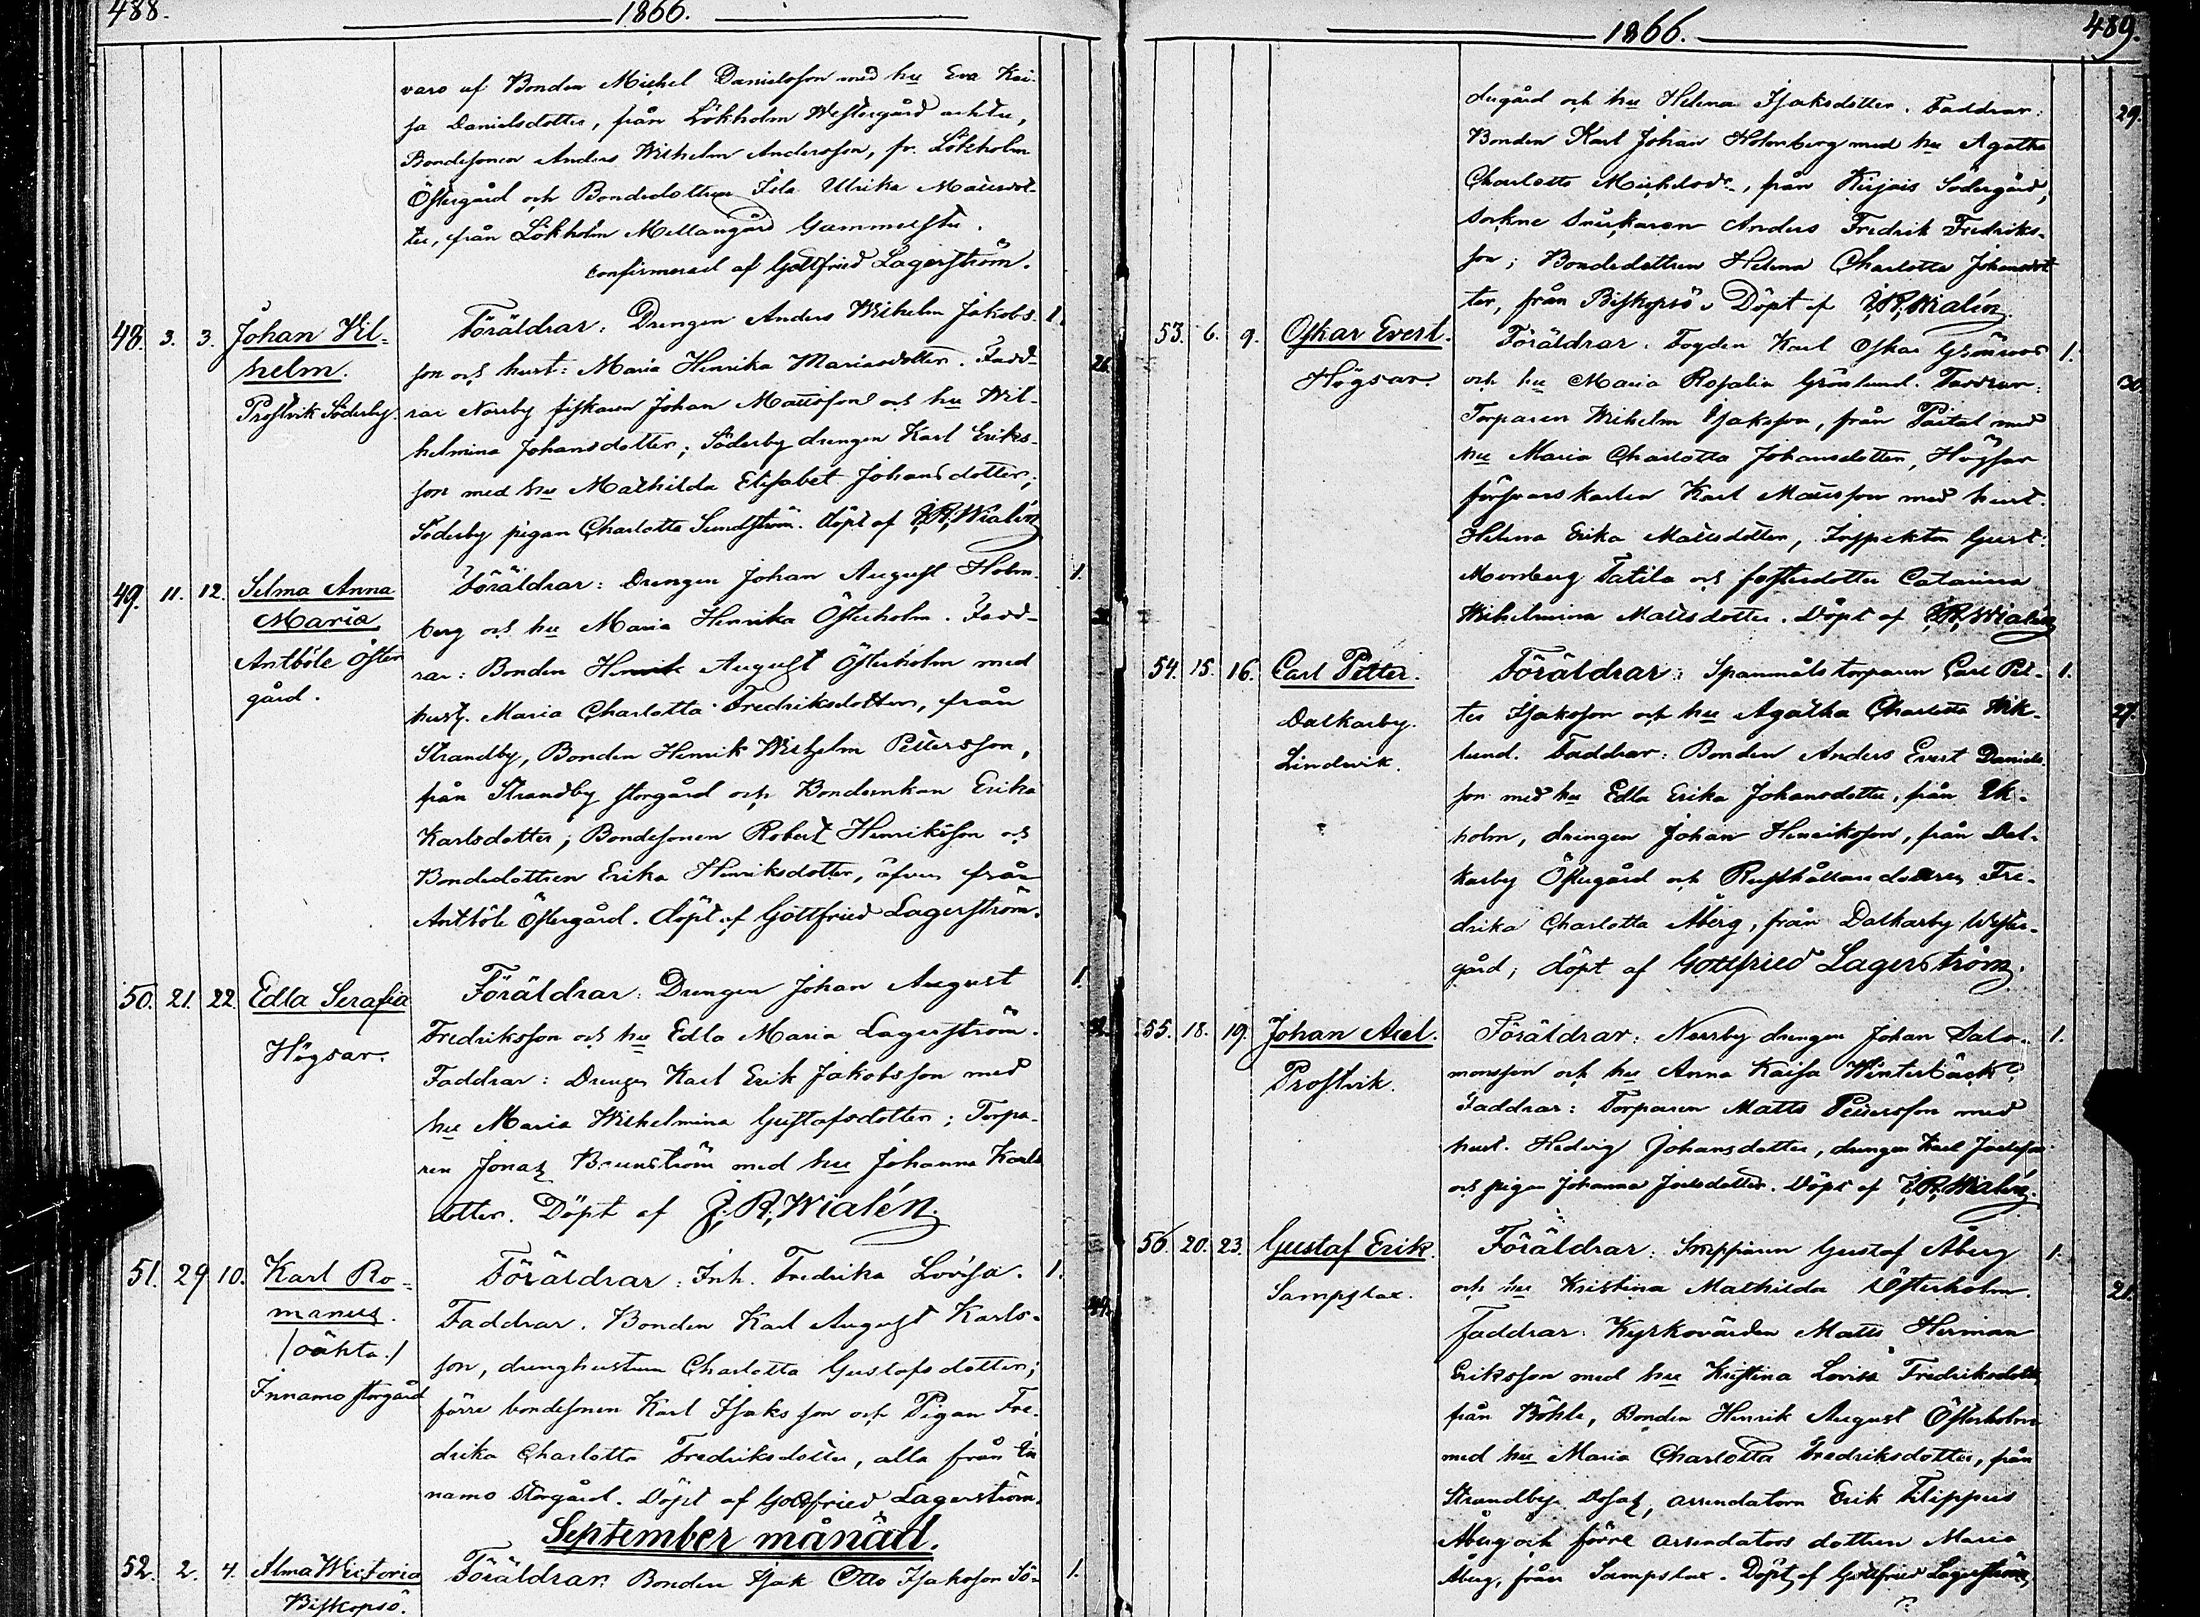 488. 1866.
varo af Bonden Michel Danielsson med hu Eva Kai-
sa Danielsdotter, från Lökholm Westergård
Bondesonen Anders Wilhelm Andersson, fr. Lökholm
Östergård och Bondedottren Ulrika Mattsdot-
ter, från Lökholm Mellangård
confirmerad af Gottfried Lagerström.
48. 3. 3. Johan Vil-
helm.
Prostvik Söderby.
Föräldrar: Drengen Anders Wilhelm Jakobs- 1.
son och hust: Maria Henrika Mariasdotter. Fadd- 26.
rar Norrby fiskaren Johan Mattsson och hu Wil-
helmina Johansdotter; Söderby drengen Karl Eriks-
son med hu Mathilda Elisabet Johansdotter;
Söderby pigan Charlotta Sundström. döpt af J.R. Wialén
49. 11. 12. Selma Anna
Maria
Antböle Öster
gård.
Föräldrar: Drengen Johan August Holm- 1.
berg och hu Maria Henrika Österholm. Fadd-
rar: Bonden Henrik August Österholm med
hust. Maria Charlotta Fredriksdotter, från
Strandby, Bonden Henrik Wilhelm Pettersson,
från Strandby storgård och Bondenkan Erika
Karlsdotter; Bondesonen Robert Henriksson och
Bondedottren Erika Henriksdotter, äfven från
Antböle Östergård. döpt af Gottfried Lagerström.
50. 21. 22. Edla Serafia
Högsar.
Föräldrar: Drengen Johan August 1.
Fredriksson och hu Edla Maria Lagerström.
Faddrar: Drengen Karl Erik Jakobsson med
hu Maria Wilhelmina Gustafsdotter; Torpa-
ren Jonas Brunström med hu Johanna Karls
dotter. Döpt af J.R. Wialén.
51. 29 10. Karl Ro-
manus.
/oäkta./
Innamo storgård
Föräldrar: Inh. Fredrika Lovisa. 1.
Faddrar. Bonden Karl August Karls-
son, drenghustrun Charlotta Gustafsdotter;
förre bondesonen Karl Isaksson och Pigan Fre-
drika Charlotta Fredriksdotter, alla från In
namo Storgård. Döpt af Gottfried Lagerström.
September månad.
52. 2. 4. Alma Wictoria
Biskopsö.
Föräldrar: Bonden Isak Otto Isaksson Sö- 1.
1866. 489.
dergård och hu Helena Isaksdotter. Faddrar: 29.
Bonden Karl Johan Holmberg med hu Agatha
Charlotta Michelsdr., från Kirjais Södergård,
sockne Snickaren Anders Fredrik Fredriks-
son; Bondedottren Helena Charlotta Johansdot
ter, från Biskopsö. Döpt af J.R. Wialén.
53. 6. 9. Oskar Evert.
Högsar.
Föräldrar. Fogden Karl Oskar Grönroos 1.
och hu Maria Rosalia Grönlund. Faddrar: 30.
Torparen Wilhelm Isaksson, från Pärtal med
hu Maria Charlotta Johansdotter, Högsar
försvarskarlen Karl Mattsson med hust.
Helena Erika Mattsdotter, Inspektor Gust.
Tatila och fosterdotter Catarina
Wilhelmina Mattsdotter. Döpt af J.R. Wialén
54. 15. 16. Carl Petter.
Dalkarby.
Lindvik.
Föräldrar: Spanmåls torparen Carl Pet- 1.
ter Isaksson och hu Agatha Charlotta Wik- 27.
lund. Faddrar: Bonden Anders Evert Daniels
son med hu Edla Erika Johansdotter, från Ek-
holm, drengen Johan Henriksson, från Dal-
karby Östergård och Rusthållaredottren Fre-
drika Charlotta Åberg, från Dalkarby Wester-
gård; döpt af Gottfried Lagerström.
55. 18. 19. Johan Axel.
Prostvik.
Föräldrar: Norrby drengen Johan Salo- 1.
monsson och hu Anna Kaisa Winterbäck.
Faddrar: Torparen Matts Pettersson med
hust. Hedvig Johansdotter, drengen Karl Joelsson
och pigan Johanna Joelsdotter. Döpt af J.R. Wialén.
56. 20. 23. Gustaf Erik.
Sampslax.
Föräldrar: Skepparen Gustaf Åberg 1.
och hu Kristina Mathilda Österholm. 21.
Faddrar: Kyrkovärden Matts Herman
Eriksson med hu Kristina Lovisa Fredriksdotter,
från Böhle, Bonden Henrik August Österholm
med hu Maria Charlotta Fredriksdotter, från
Strandby arrendatorn Erik Filippus
Åberg och förre arrendators dottren Maria
Åberg, från Sampslax. Döpt af Gottfried Lagerström